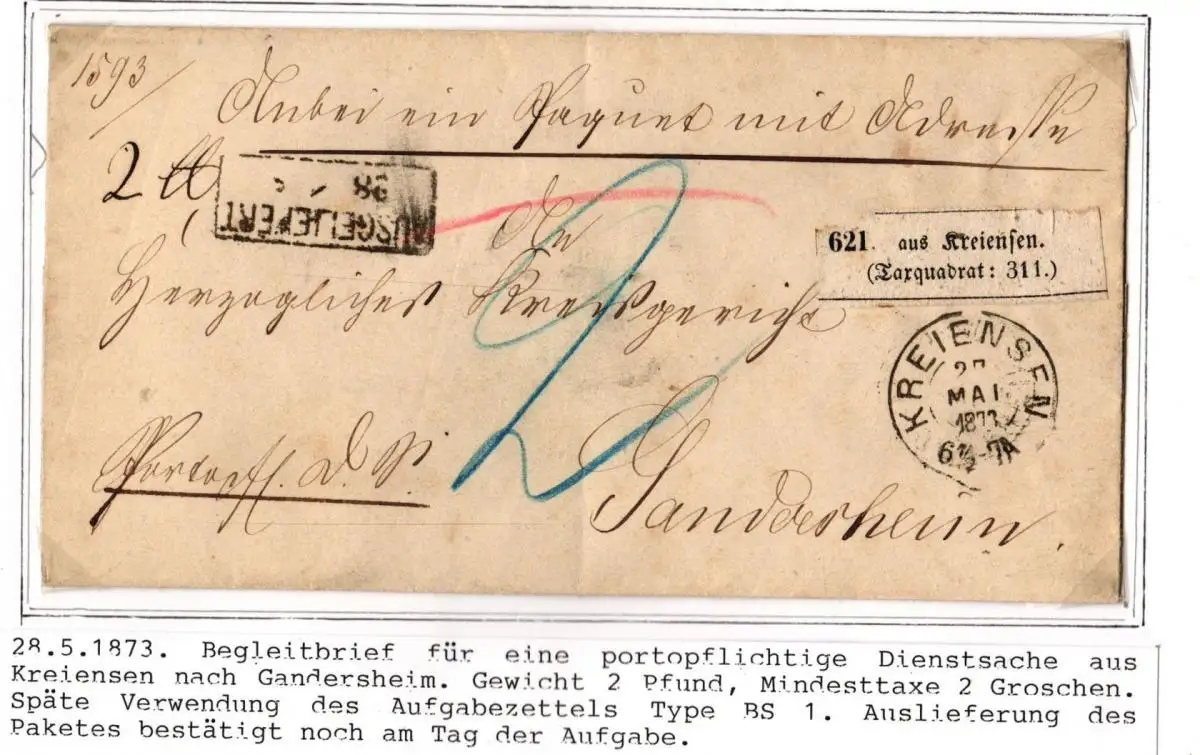 1593
Anbei ein Paquet mit Adresse
2 ℔
28 5
AUSGELIEFERT
An
621. aus Kreiensen.
(Taxquadrat: 311.)
Herzogliches Kreisgericht
2
KREIENSEN
27
MAI
1873
6½-7A
Portopfl. D. S.
Gandersheim.
28.5.1873. Begleitbrief für eine portopflichtige Dienstsache aus
Kreiensen nach Gandersheim. Gewicht 2 Pfund, Mindesttaxe 2 Groschen.
Späte Verwendung des Aufgabezettels Type BS 1. Auslieferung des
Paketes bestätigt noch am Tag der Aufgabe.